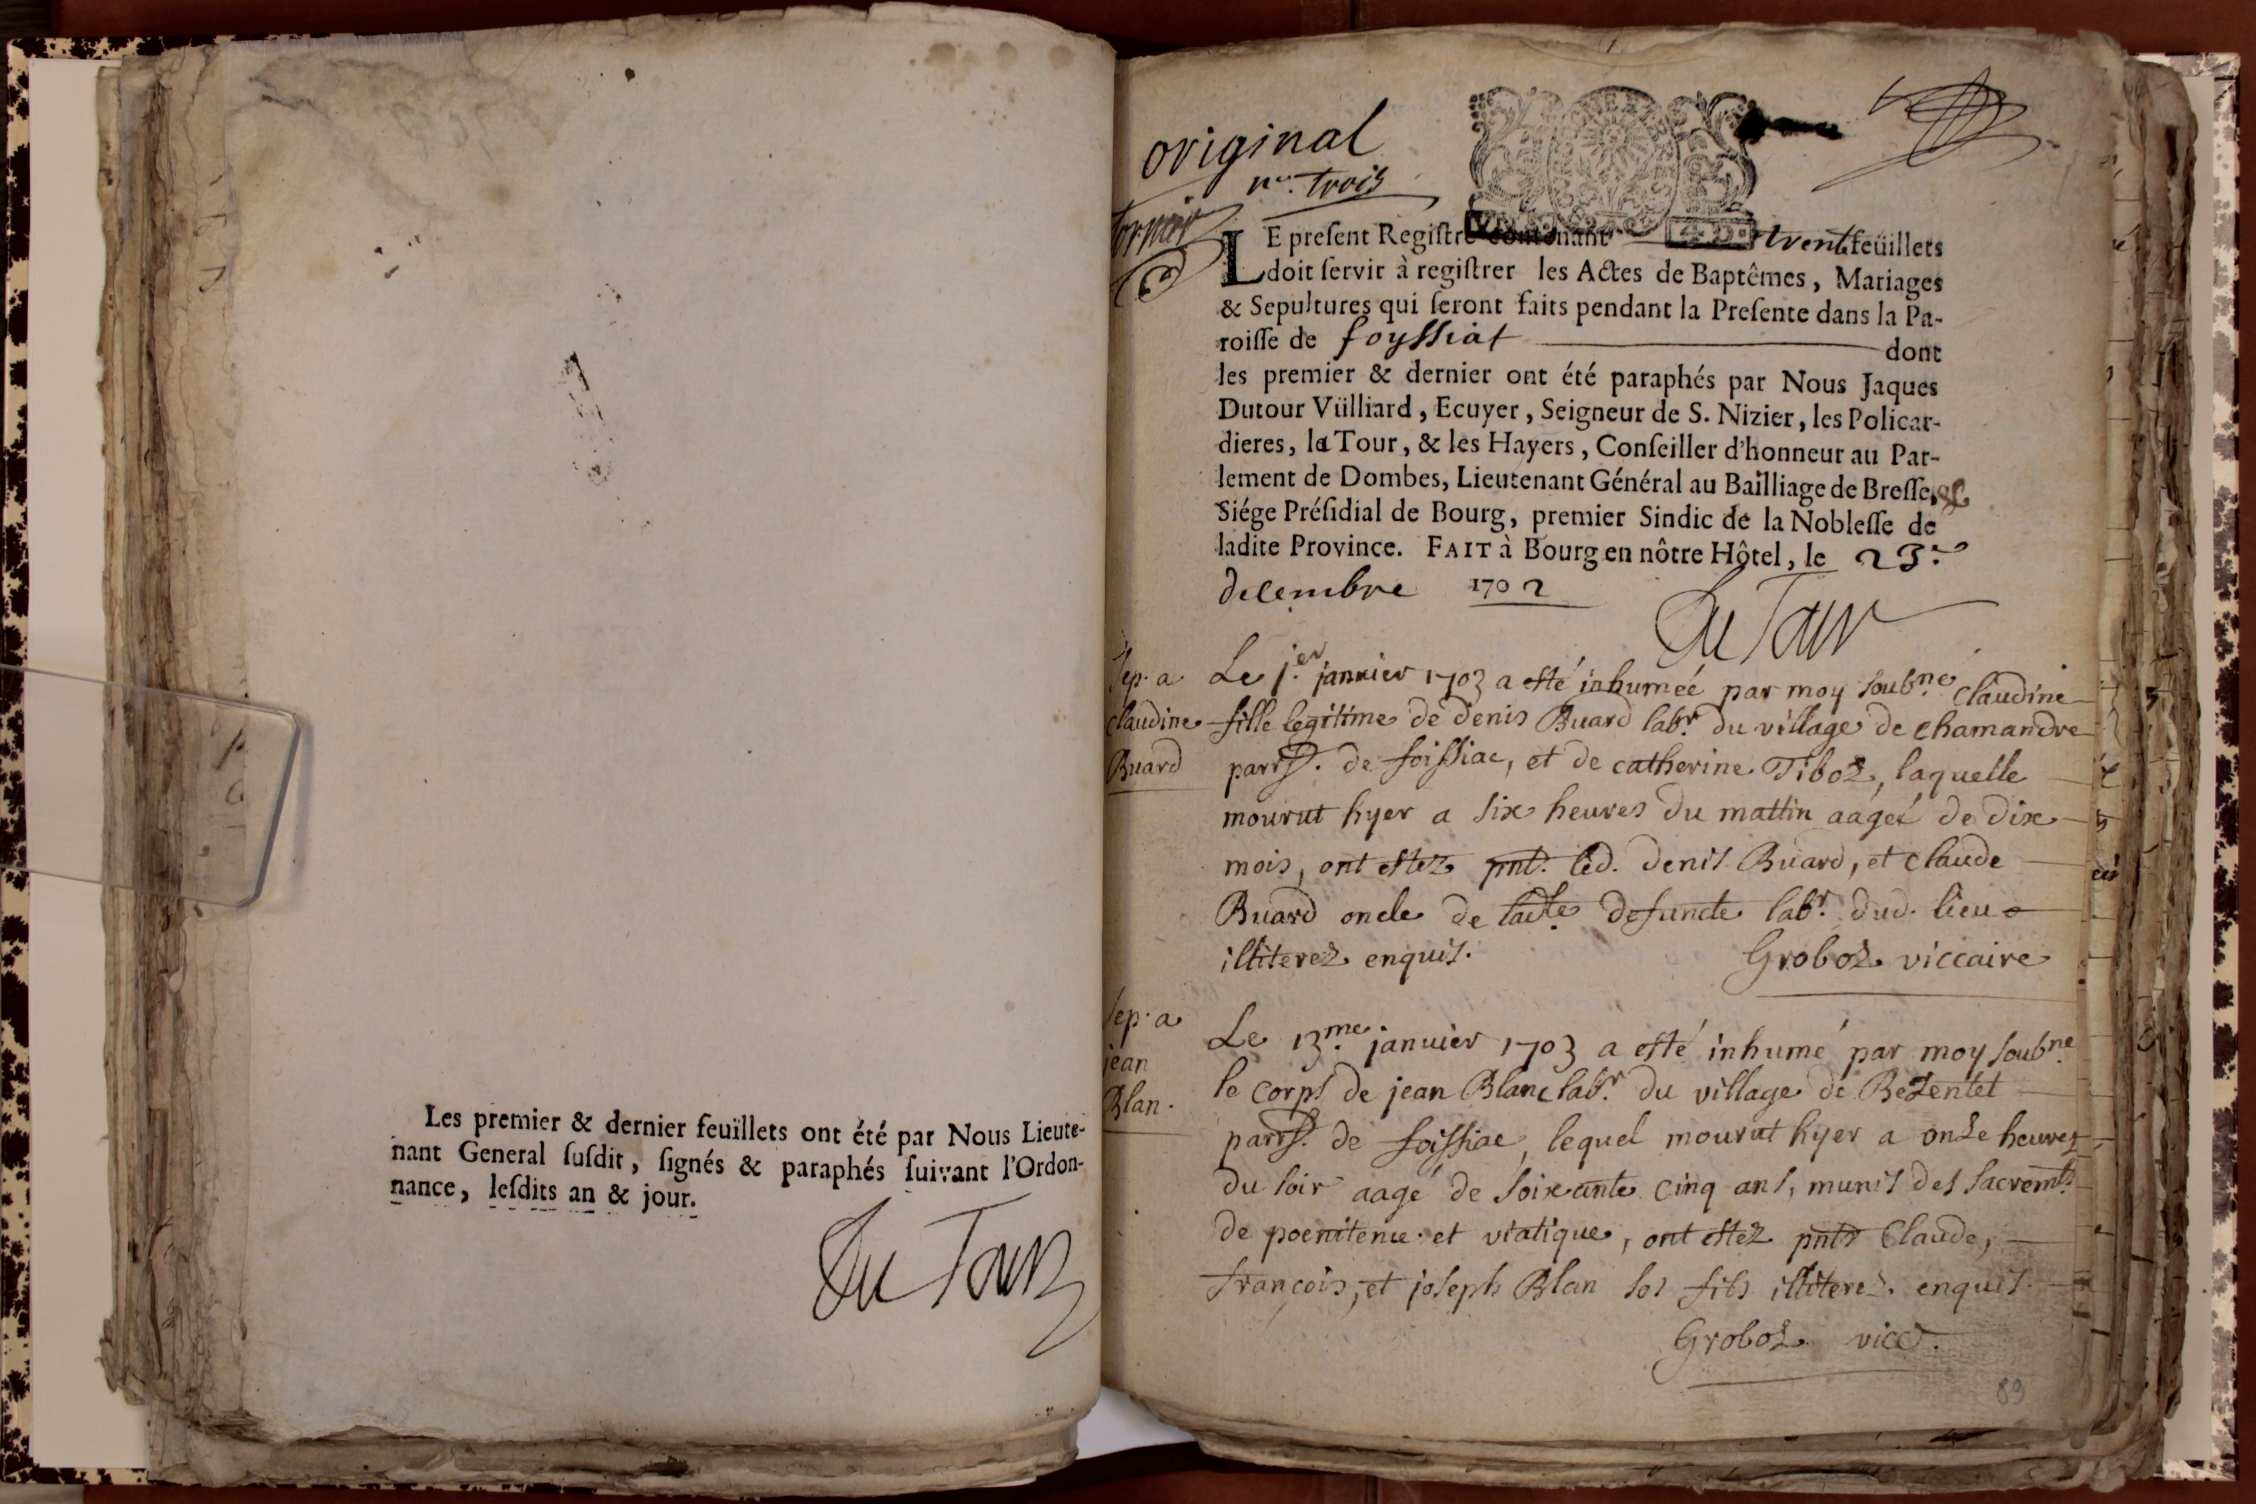 Les premier & dernier feuïllets ont été par Nous Lieute-
nant General ſuſdit, ſignés & paraphés ſuivant l'Ordon-
nance, leſdits an & jour.
Du Tour
original
n.º trois
LE preſent Regiſtre contenant trent feüillets
doit ſervir à regiſtrer les Actes de Baptêmes, Mariages
& Sepultures qui ſeront faits pendant la Preſente dans la Pa-
roiſſe de foyssiat dont
les premier & dernier ont été paraphés par Nous Jaques
Dutour Vülliard, Ecuyer, Seigneur de S. Nizier, les Policar-
dieres, la Tour, & les Hayers, Conſeiller d'honneur au Par-
lement de Dombes, Lieutenant Général au Bailliage de Breſſe, &
Siége Préſidial de Bourg, premier Sindic de la Nobleſſe de
ladite Province. FAIT à Bourg en nôtre Hôtel, le 23.e
decembre 1702
Du Tour
Sep. a
claudine
Buard
Le 1.er janvier 1703 a esté inhumée par moy soubné claudine
fille legitime de denis Buard labr. du village de chamandre
parrss. de foissiac, et de catherine Tiboz, laquelle
mourut hyer a six heures du mattin aageé de dix
mois, ont estez pnts. led. denis Buard, et claude
Buard oncle de ladte. defuncte labr. dud. lieu
illiterez enquis.
Groboz viccaire
Sep. a
jean
Blan.
Le 13.me janvier 1703 a esté inhumé par moy soubné
le corps de jean Blanc labr. du village de Bezentet
parrss. de foissiac, lequel mourut hyer a onze heures
du soir aagé de soixante cinq ans, munis des sacremts
de poenitence et viatique, ont estez pnts Claude,
françois, et joseph Blan ses fils illiterez. enquis.
Groboz vicc.
89